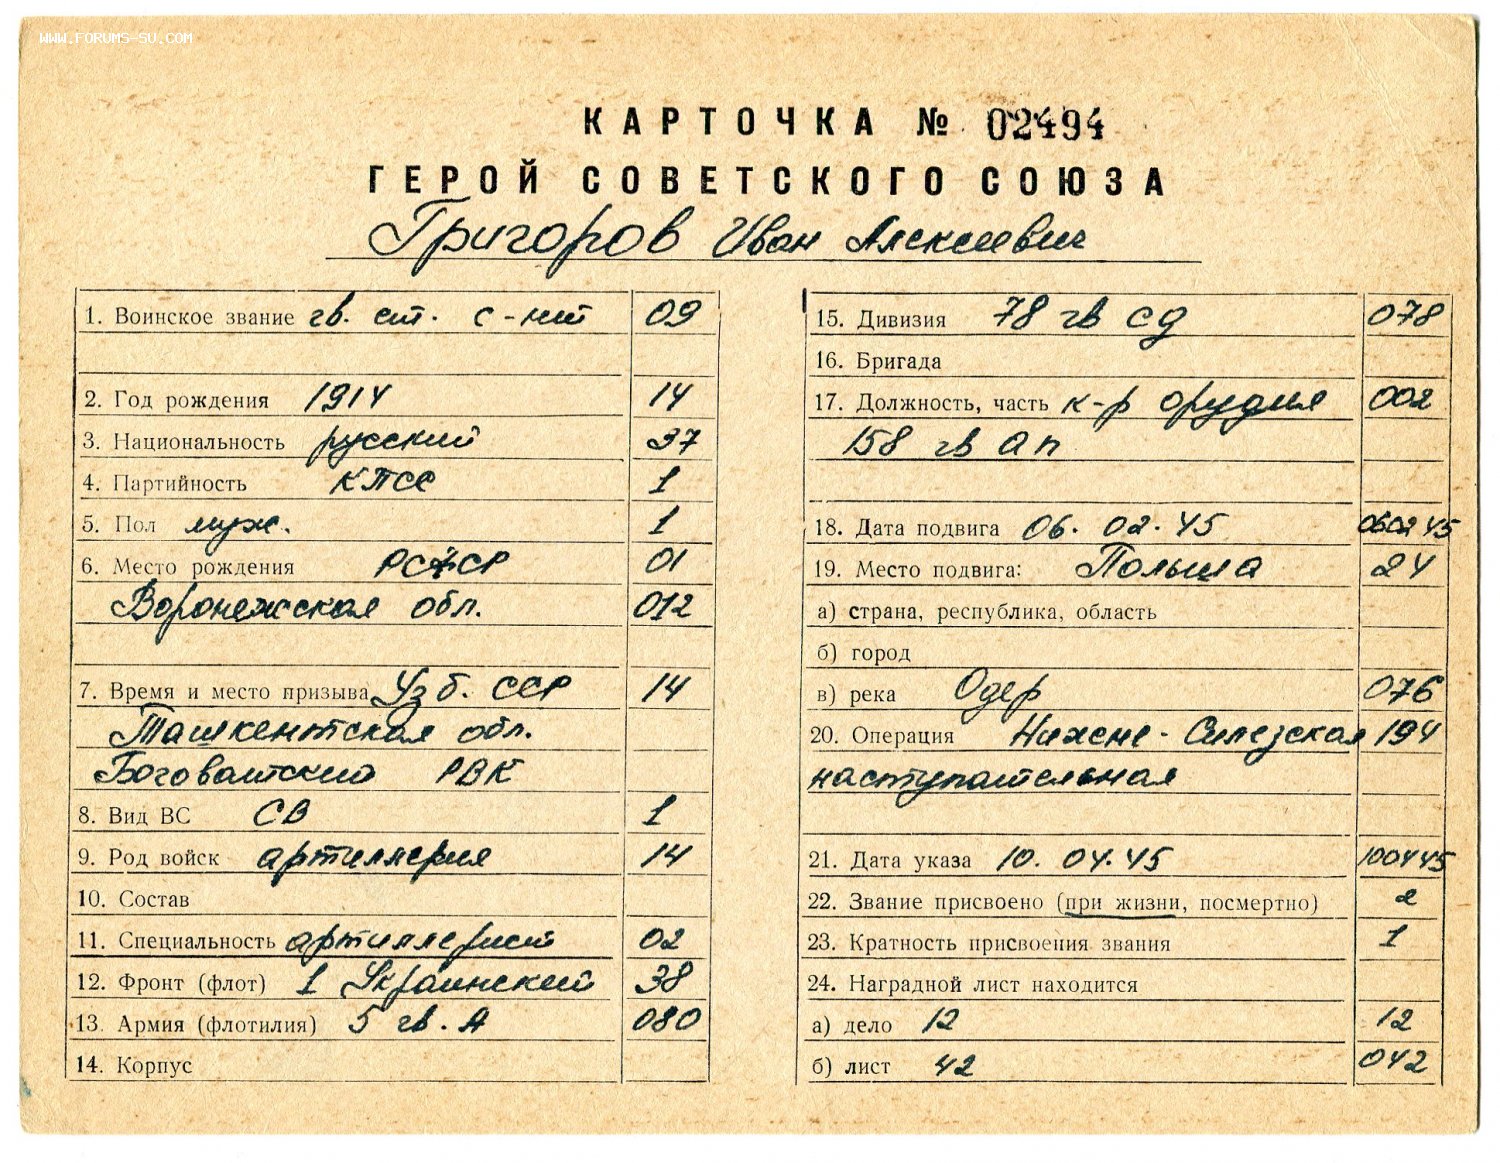 WWW.FORUMS-SU.COM
КАРТОЧКА № 02494
ГЕРОЙ СОВЕТСКОГО СОЮЗА
Григоров Иван Алексеевич
1. Воинское звание гв. ст. с-нт 09
2. Год рождения 1914 14
3. Национальность русский 37
4. Партийность КПСС 1
5. Пол муж. 1
6. Место рождения РСФСР 01
Воронежская обл. 012
7. Время и место призыва Узб. ССР 14
Ташкентская обл.
Боговатский РВК
8. Вид ВС СВ 1
9. Род войск артиллерия 14
10. Состав
11. Специальность артиллерист 02
12. Фронт (флот) 1 Украинский 38
13. Армия (флотилия) 5 гв. А 080
14. Корпус
15. Дивизия 78 гв сд 078
16. Бригада
17. Должность, часть к-р орудия 002
158 гв ап
18. Дата подвига 06. 02. 45 060245
19. Место подвига: Польша 24
а) страна, республика, область
б) город
в) река Одер 076
20. Операция Нижне-Силезская 194
наступательная
21. Дата указа 10. 04. 45 100445
22. Звание присвоено (при жизни, посмертно) 2
23. Кратность присвоения звания 1
24. Наградной лист находится
а) дело 12 12
б) лист 42 042